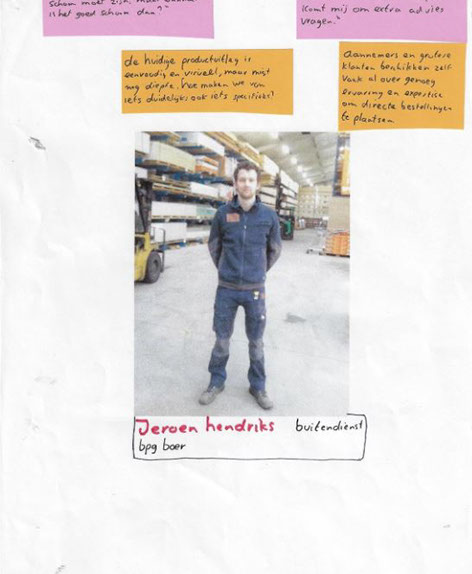 schoon moet zijn, maar
is het goed schoon dan?"
komt mij om extra advies
vragen."
de huidige productuitleg is
eenvoudig en visueel, maar mist
nog diepte. hoe maken we van
iets duidelijks ook iets specifieks?
Aannemers en grotere
klanten beschikken zelf
vaak al over genoeg
ervaring en expertise
om directe bestellingen
te plaatsen
Jeroen hendriks buitendienst
bpg boer